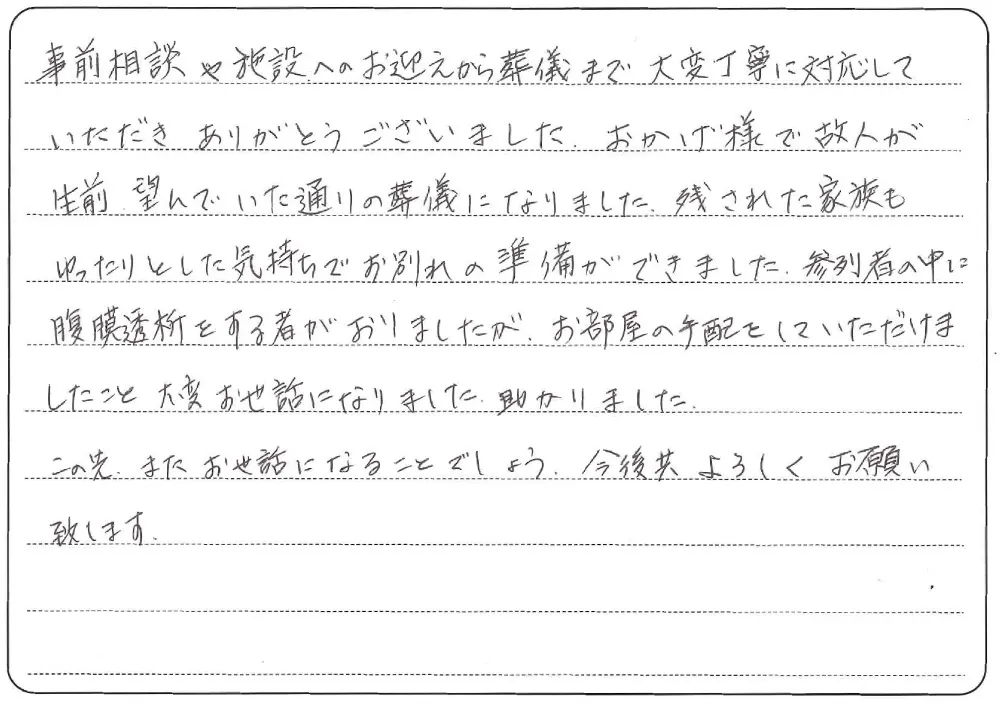 事前相談や施設へのお迎えから葬儀まで 大変丁寧に対応して
いただき ありがとうございました。おかげ様で故人が
生前 望んでいた通りの葬儀になりました。残された家族も
ゆったりとした気持ちでお別れの準備ができました。参列者の中に
腹膜透析をする者がおりましたが、お部屋の手配をしていただけま
したこと 大変お世話になりました。助かりました。
この先、また お世話になることでしょう。今後共 よろしく お願い
致します。